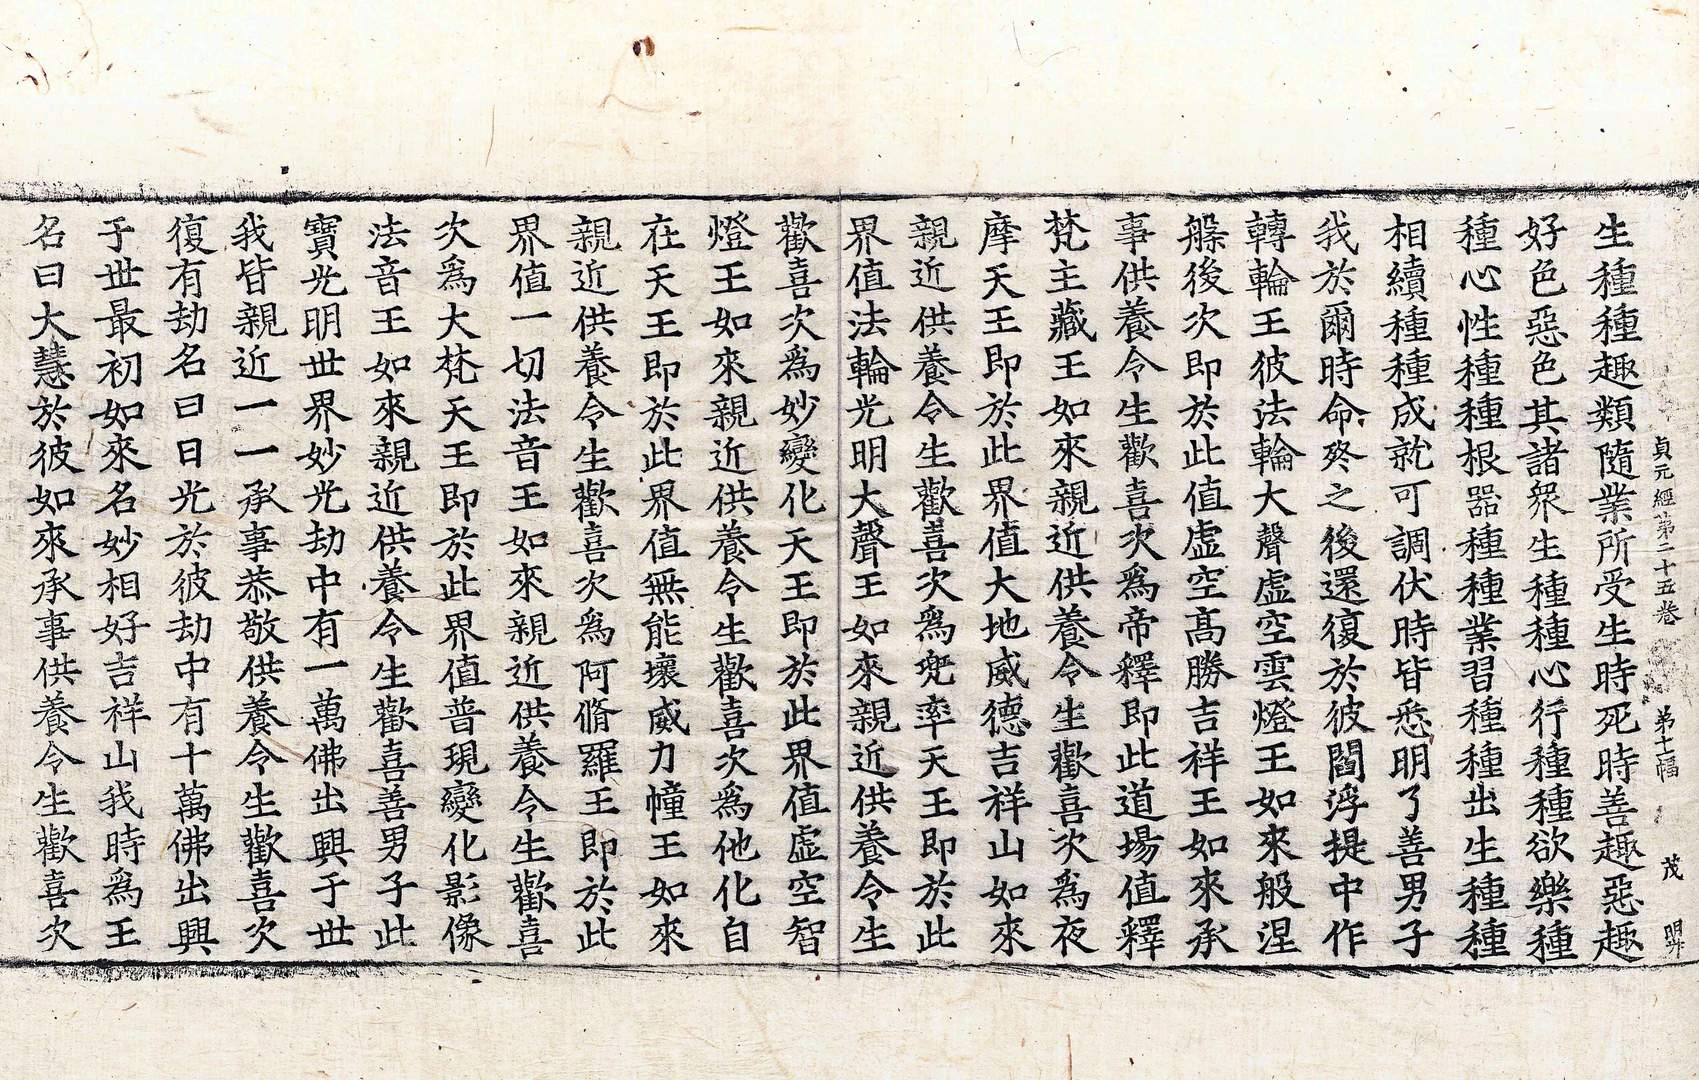 貞元經第二十五卷 第十幅 茂 昇
生種種趣類隨業所受生時死時善趣惡趣
好色惡色其諸衆生種種心行種種欲樂種
種心性種種根器種種業習種種出生種種
相續種種成就可調伏時皆悉明了善男子
我於爾時命終之後還復於彼閻浮提中作
轉輪王彼法輪大聲虛空雲燈王如來般涅
槃後次即於此值虛空高勝吉祥王如來承
事供養令生歡喜次爲帝釋即此道場值釋
梵主藏王如來親近供養令生歡喜次爲夜
摩天王即於此界值大地威德吉祥山如來
親近供養令生歡喜次爲兜率天王即於此
界值法輪光明大聲王如來親近供養令生
歡喜次爲妙變化天王即於此界值虛空智
燈王如來親近供養令生歡喜次爲他化自
在天王即於此界值無能壞威力幢王如來
親近供養令生歡喜次爲阿脩羅王即於此
界值一切法音王如來親近供養令生歡喜
次爲大梵天王即於此界值普現變化影像
法音王如來親近供養令生歡喜善男子此
寶光明世界妙光劫中有一萬佛出興于世
我皆親近一一承事恭敬供養令生歡喜次
復有劫名曰日光於彼劫中有十萬佛出興
于世最初如來名妙相好吉祥山我時爲王
名曰大慧於彼如來承事供養令生歡喜次